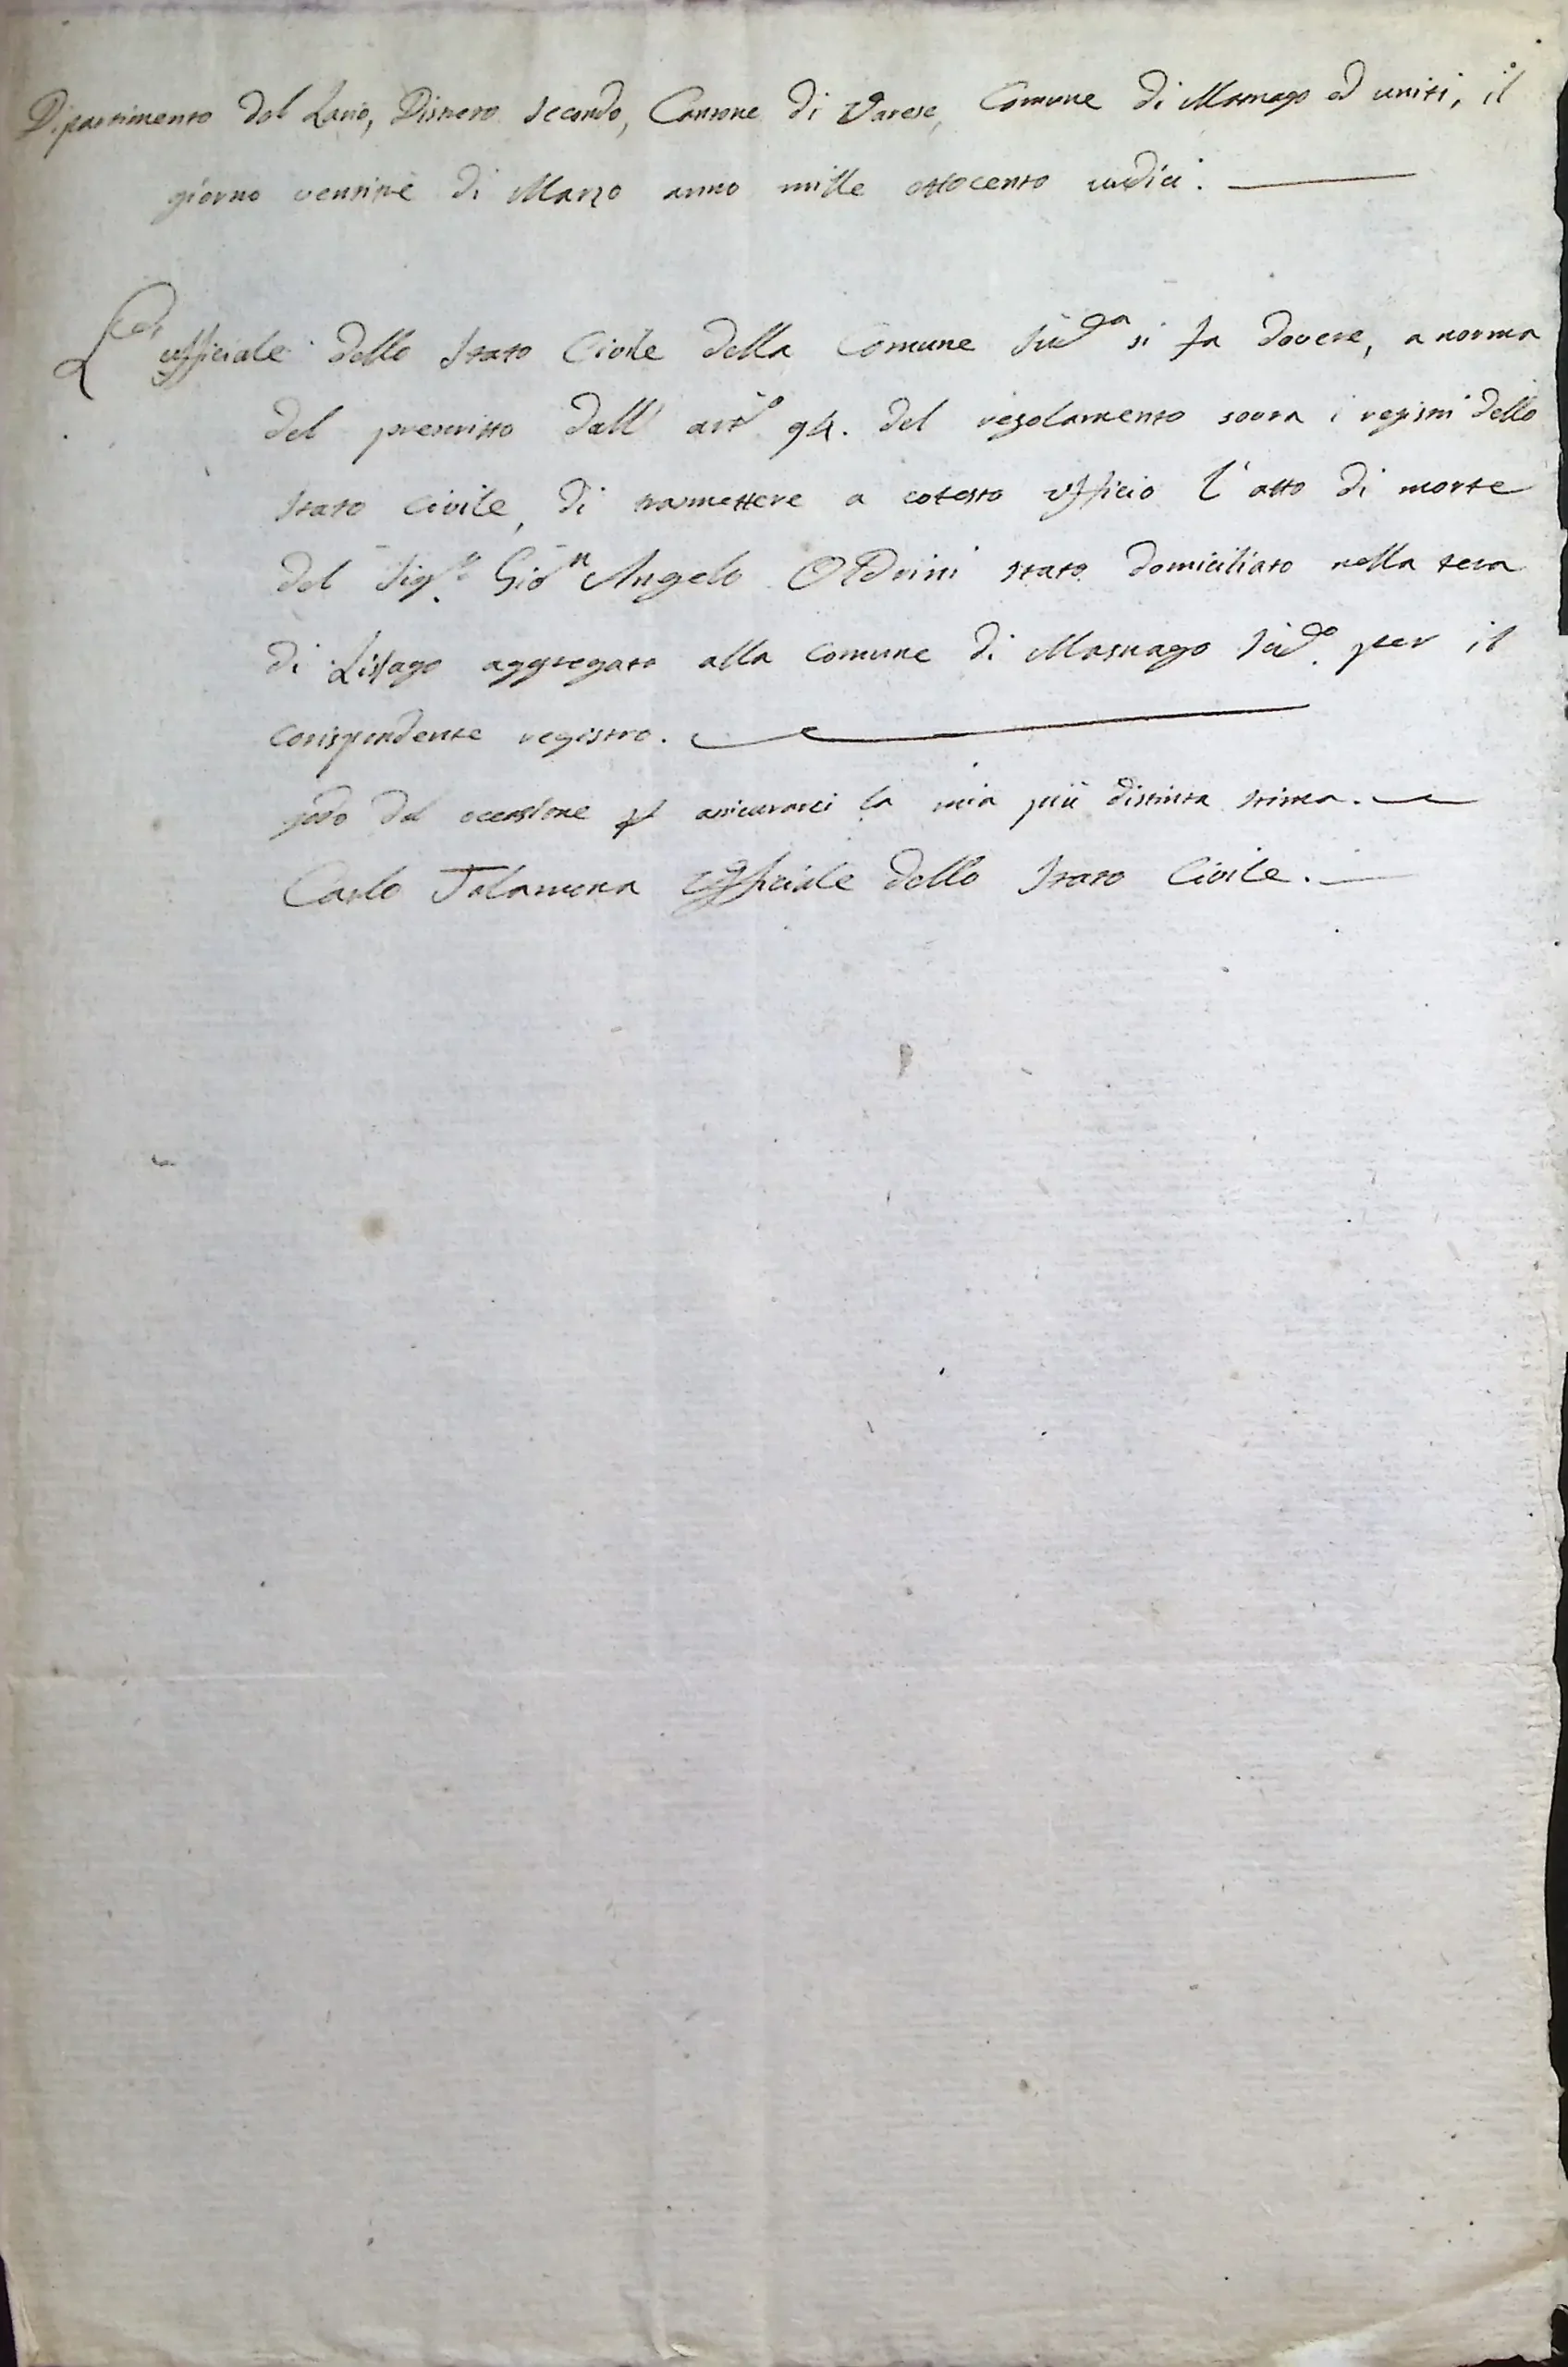 Dipartimento del Lario, Distreto Secondo, Cantone di Varese, Comune di Masnago ed uniti, il
giorno di Marzo anno mille ottocento undici.
L'ufficiale dello Stato Civile della Comune Sud.a si fa dovere, a norma
del prescritto dall' art.o 94. del regolamento sovra i registri dello
Stato Civile, di trasmettere a cotesto Ufficio l'atto di morte
del Sig.r Gio.n Angelo Oldrini stato domiciliato nella tera
di Lissago aggregata alla Comune di Masnago Sud.o per il
corispondente registro.
godo del occasione p asicurarci la mia più distinta stima.
Carlo Talamona Ufficiale dello Stato Civile.